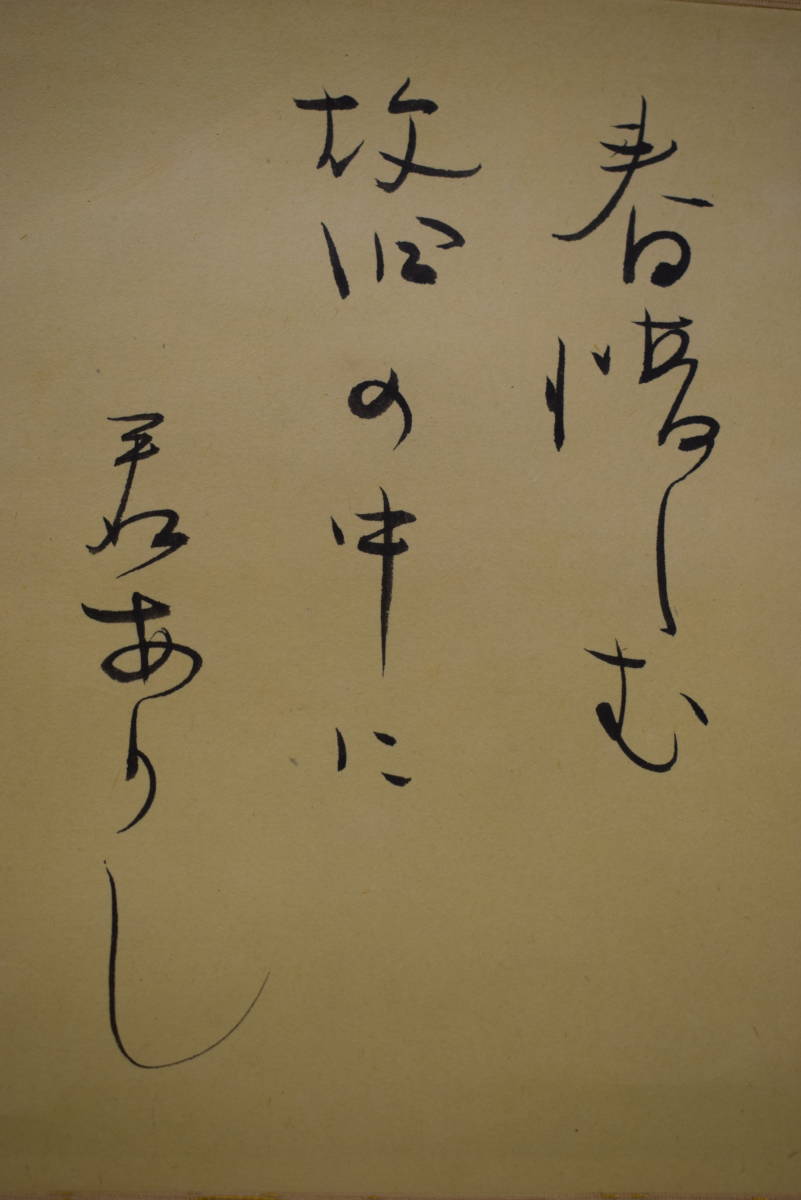 春惜しむ
故旧の中に
君ありし